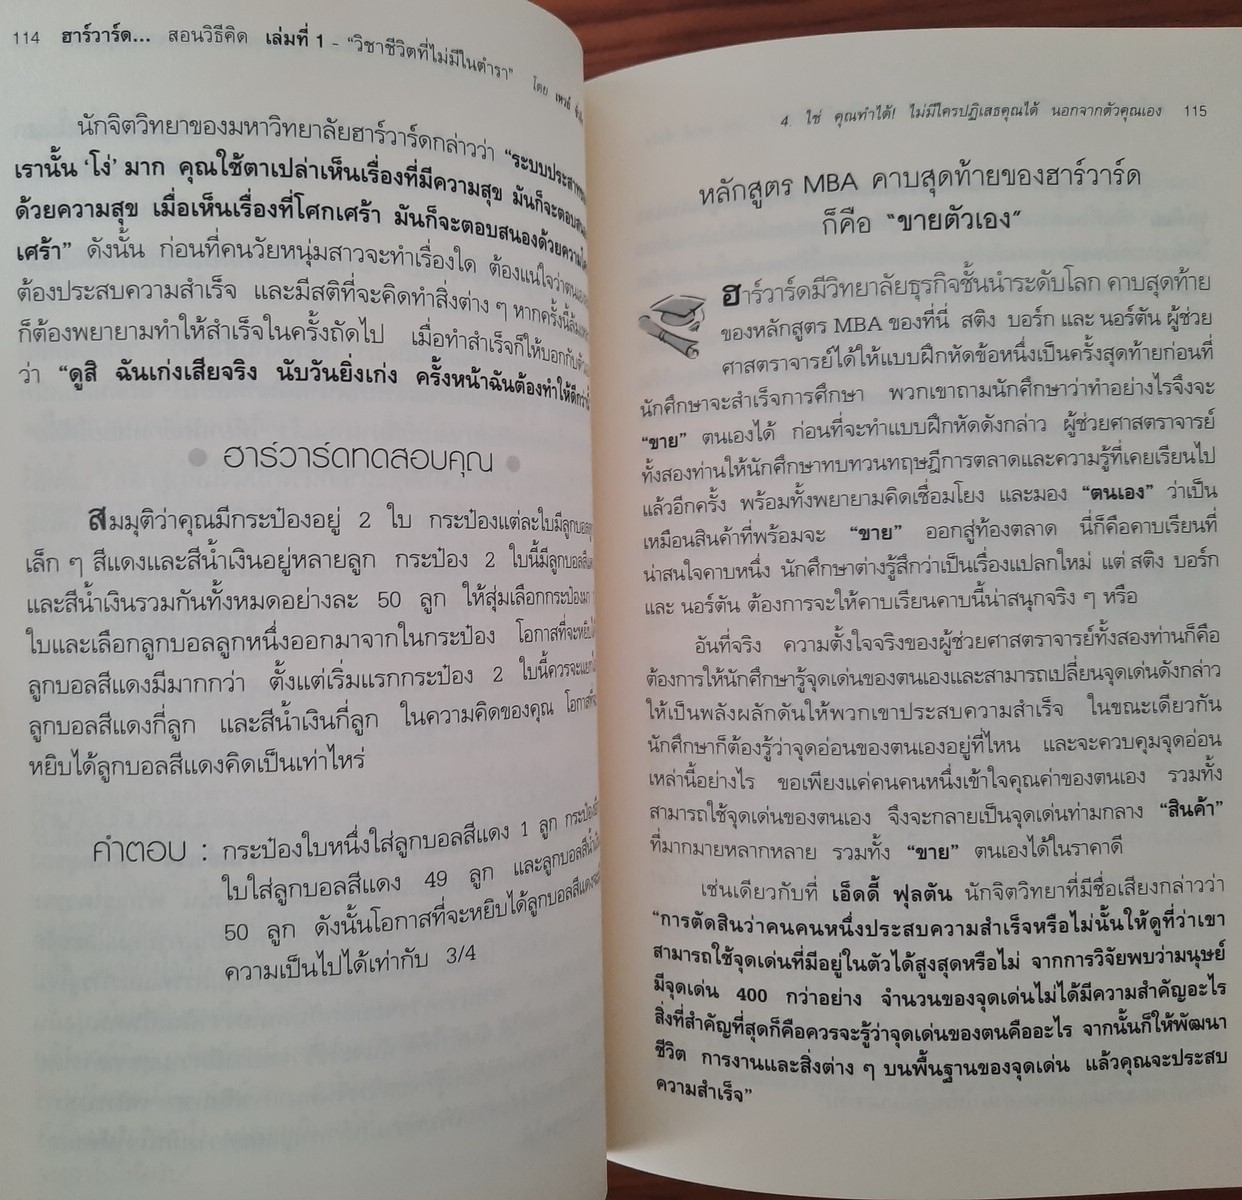 114 ฮาร์วาร์ด... สอนวิธีคิด เล่มที่ 1 - "วิชาชีวิตที่ไม่มีในตำรา" โดย เหวย์
นักจิตวิทยาของมหาวิทยาลัยฮาร์วาร์ดกล่าวว่า "ระบบประสาท
เรานั้น 'โง่' มาก คุณใช้ตาเปล่าเห็นเรื่องที่มีความสุข มันก็จะตอบสนอง
ด้วยความสุข เมื่อเห็นเรื่องที่โศกเศร้า มันก็จะตอบสนองด้วยความ
เศร้า" ดังนั้น ก่อนที่คนวัยหนุ่มสาวจะทำเรื่องใด ต้องแน่ใจว่าตนเอง
ต้องประสบความสำเร็จ และมีสติที่จะคิดทำสิ่งต่าง ๆ หากครั้งนี้
ก็ต้องพยายามทำให้สำเร็จในครั้งถัดไป เมื่อทำสำเร็จก็ให้บอกกับ
ว่า "ดูสิ ฉันเก่งเสียจริง นับวันยิ่งเก่ง ครั้งหน้าฉันต้องทำให้ดีกว่า
ฮาร์วาร์ดทดสอบคุณ
สมมุติว่าคุณมีกระป๋องอยู่ 2 ใบ กระป๋องแต่ละใบมีลูกบอล
เล็ก ๆ สีแดงและสีน้ำเงินอยู่หลายลูก กระป๋อง 2 ใบนี้มีลูกบอล
และสีน้ำเงินรวมกันทั้งหมดอย่างละ 50 ลูก ให้สุ่มเลือกกระป๋อง
ใบและเลือกลูกบอลลูกหนึ่งออกมาจากในกระป๋อง โอกาสที่จะหยิบ
ลูกบอลสีแดงมีมากกว่า ตั้งแต่เริ่มแรกกระป๋อง 2 ใบนี้ควรจะ
ลูกบอลสีแดงกี่ลูก และสีน้ำเงินกี่ลูก ในความคิดของคุณ โอกาส
หยิบได้ลูกบอลสีแดงคิดเป็นเท่าไหร่
คำตอบ : กระป๋องใบหนึ่งใส่ลูกบอลสีแดง 1 ลูก กระป๋อง
ใบใส่ลูกบอลสีแดง 49 ลูก และลูกบอลสีน้ำเงิน
50 ลูก ดังนั้นโอกาสที่จะหยิบได้ลูกบอลสีแดง
ความเป็นไปได้เท่ากับ 3/4
4. ใช่ คุณทำได้! ไม่มีใครปฏิเสธคุณได้ นอกจากตัวคุณเอง 115
หลักสูตร MBA คาบสุดท้ายของฮาร์วาร์ด
ก็คือ "ขายตัวเอง"
ฮาร์วาร์ดมีวิทยาลัยธุรกิจชั้นนำระดับโลก คาบสุดท้าย
ของหลักสูตร MBA ของที่นี่ สติง บอร์ก และ นอร์ตัน ผู้ช่วย
ศาสตราจารย์ได้ให้แบบฝึกหัดข้อหนึ่งเป็นครั้งสุดท้ายก่อนที่
นักศึกษาจะสำเร็จการศึกษา พวกเขาถามนักศึกษาว่าทำอย่างไรจึงจะ
"ขาย" ตนเองได้ ก่อนที่จะทำแบบฝึกหัดดังกล่าว ผู้ช่วยศาสตราจารย์
ทั้งสองท่านให้นักศึกษาทบทวนทฤษฎีการตลาดและความรู้ที่เคยเรียนไป
แล้วอีกครั้ง พร้อมทั้งพยายามคิดเชื่อมโยง และมอง "ตนเอง" ว่าเป็น
เหมือนสินค้าที่พร้อมจะ "ขาย" ออกสู่ท้องตลาด นี่ก็คือคาบเรียนที่
น่าสนใจคาบหนึ่ง นักศึกษาต่างรู้สึกว่าเป็นเรื่องแปลกใหม่ แต่ สติง บอร์ก
และ นอร์ตัน ต้องการจะให้คาบเรียนคาบนี้น่าสนุกจริง ๆ หรือ
อันที่จริง ความตั้งใจจริงของผู้ช่วยศาสตราจารย์ทั้งสองท่านก็คือ
ต้องการให้นักศึกษารู้จุดเด่นของตนเองและสามารถเปลี่ยนจุดเด่นดังกล่าว
ให้เป็นพลังผลักดันให้พวกเขาประสบความสำเร็จ ในขณะเดียวกัน
นักศึกษาก็ต้องรู้ว่าจุดอ่อนของตนเองอยู่ที่ไหน และจะควบคุมจุดอ่อน
เหล่านี้อย่างไร ขอเพียงแค่คนคนหนึ่งเข้าใจคุณค่าของตนเอง รวมทั้ง
สามารถใช้จุดเด่นของตนเอง จึงจะกลายเป็นจุดเด่นท่ามกลาง "สินค้า"
ที่มากมายหลากหลาย รวมทั้ง "ขาย" ตนเองได้ในราคาดี
เช่นเดียวกับที่ เอ็ดดี้ ฟุลตัน นักจิตวิทยาที่มีชื่อเสียงกล่าวว่า
"การตัดสินว่าคนคนหนึ่งประสบความสำเร็จหรือไม่นั้นให้ดูที่ว่าเขา
สามารถใช้จุดเด่นที่มีอยู่ในตัวได้สูงสุดหรือไม่ จากการวิจัยพบว่ามนุษย์
มีจุดเด่น 400 กว่าอย่าง จำนวนของจุดเด่นไม่ได้มีความสำคัญอะไร
สิ่งที่สำคัญที่สุดก็คือควรจะรู้ว่าจุดเด่นของตนคืออะไร จากนั้นก็ให้พัฒนา
ชีวิต การงานและสิ่งต่าง ๆ บนพื้นฐานของจุดเด่น แล้วคุณจะประสบ
ความสำเร็จ"